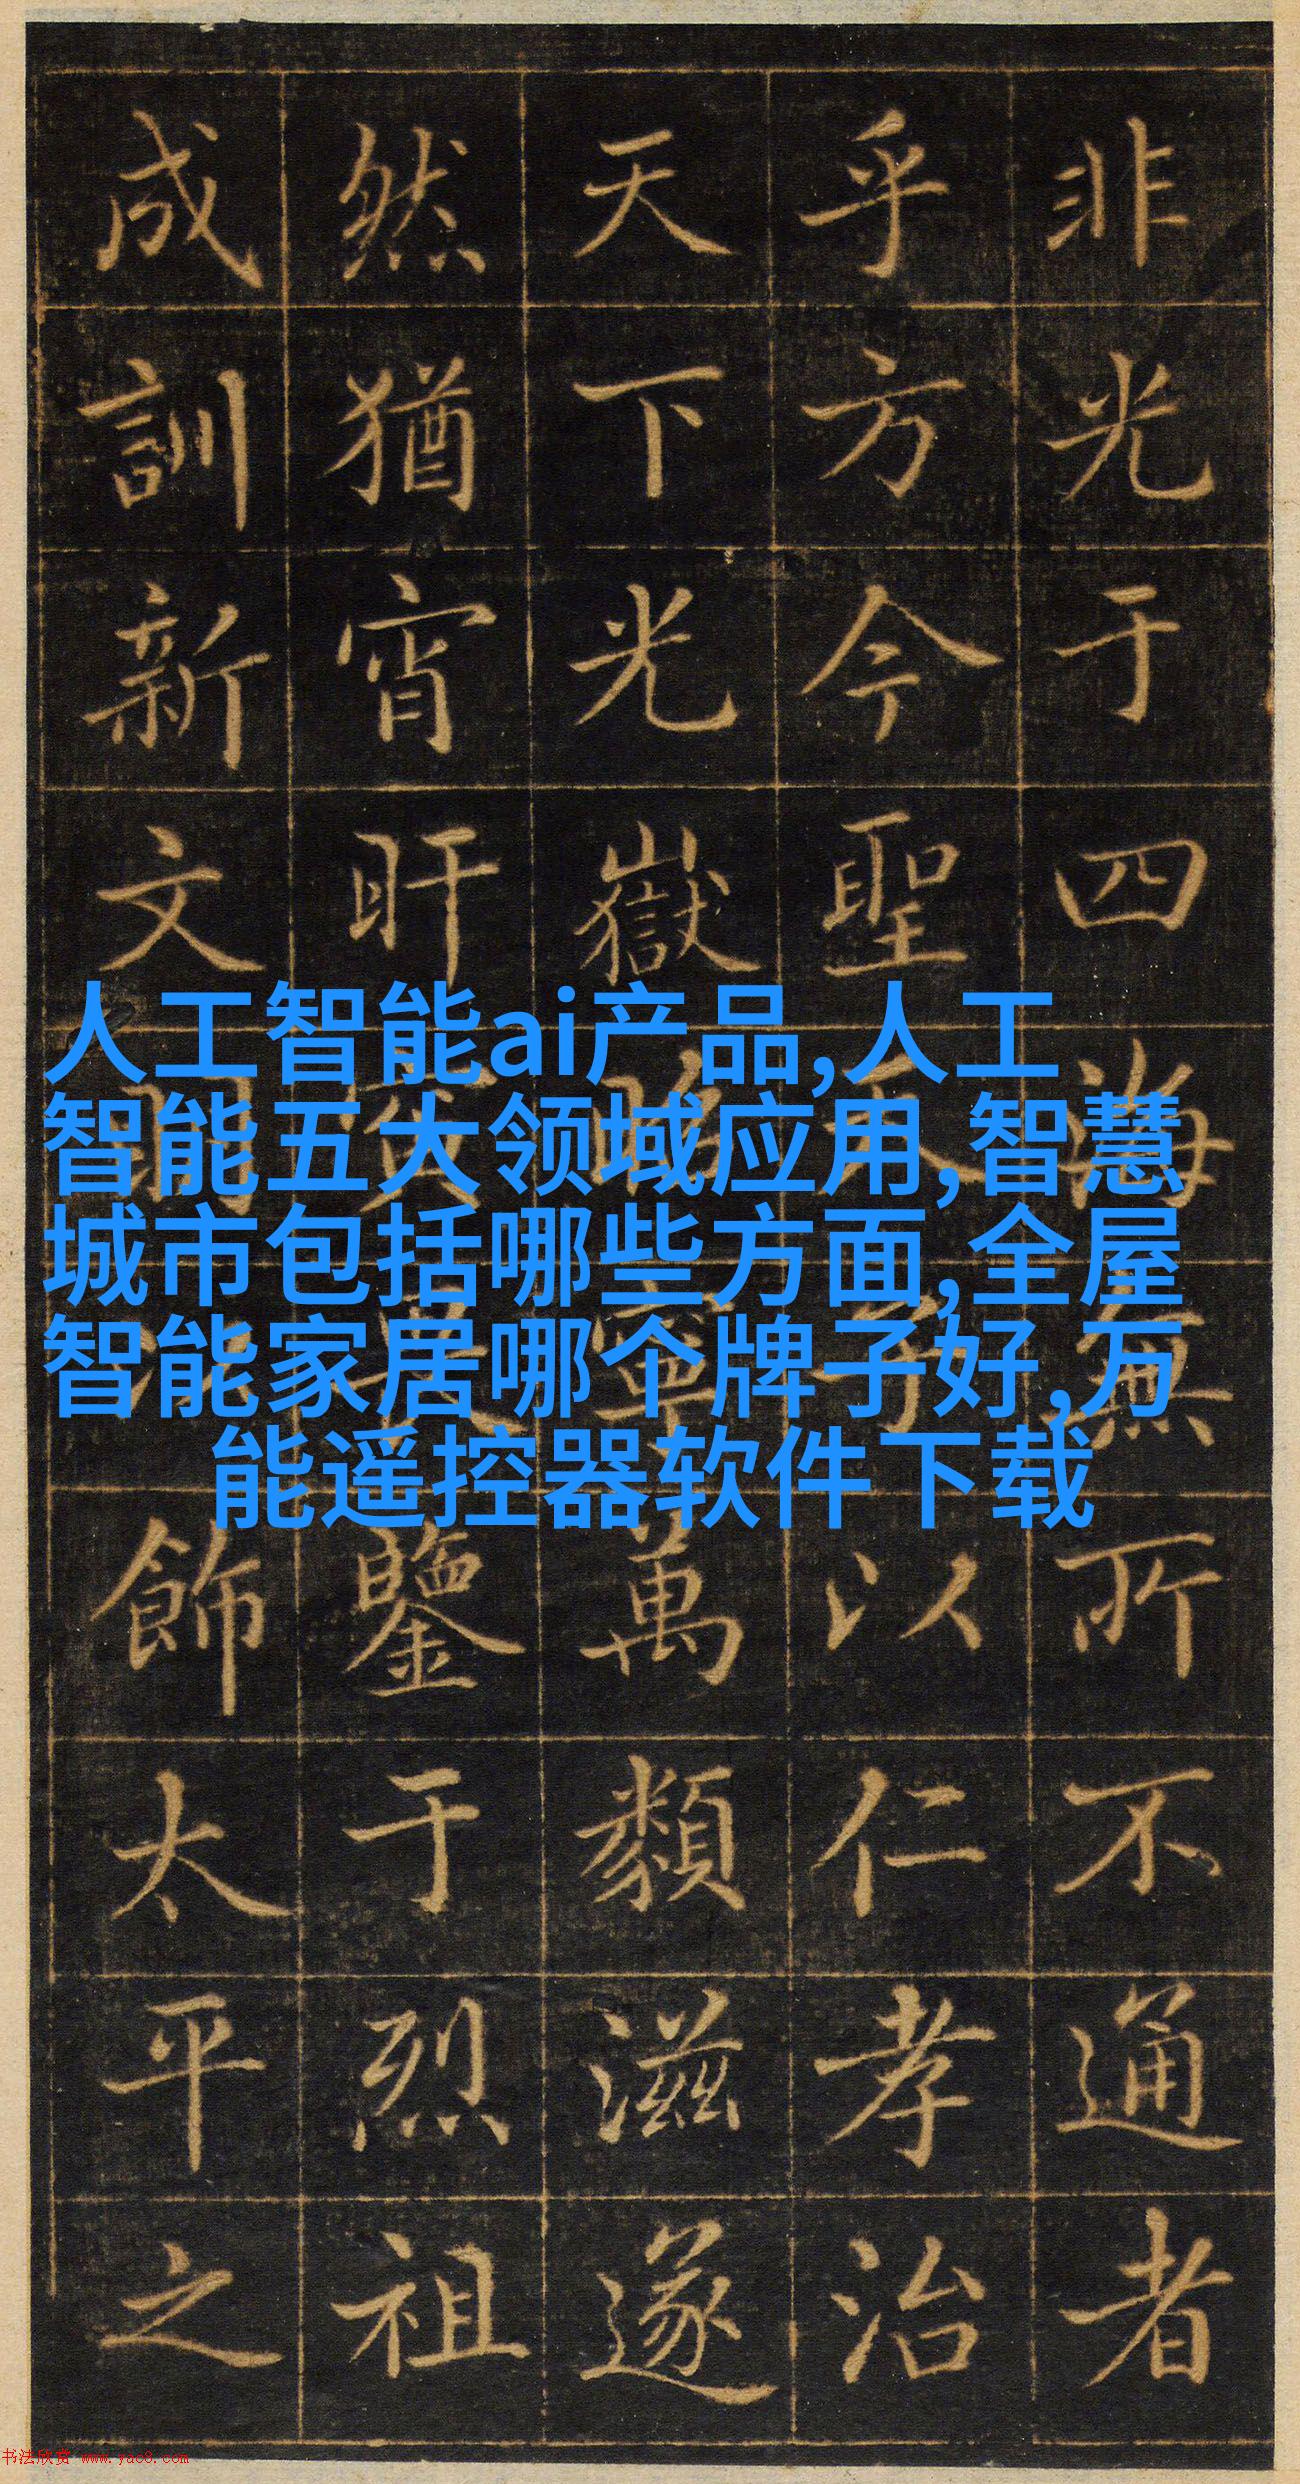 非光于四海無所不通者
乎方今聖子以仁孝治
天下光嶽寧萬類滋遂
然猶宵旰鑒于烈祖
成訓新文飾太平之
人工智能ai产品,人工
智能五大领域应用,智慧
城市包括哪些方面,全屋
智能家居哪个牌子好,万
能遥控器软件下载
书法欣赏 www.yac8.com